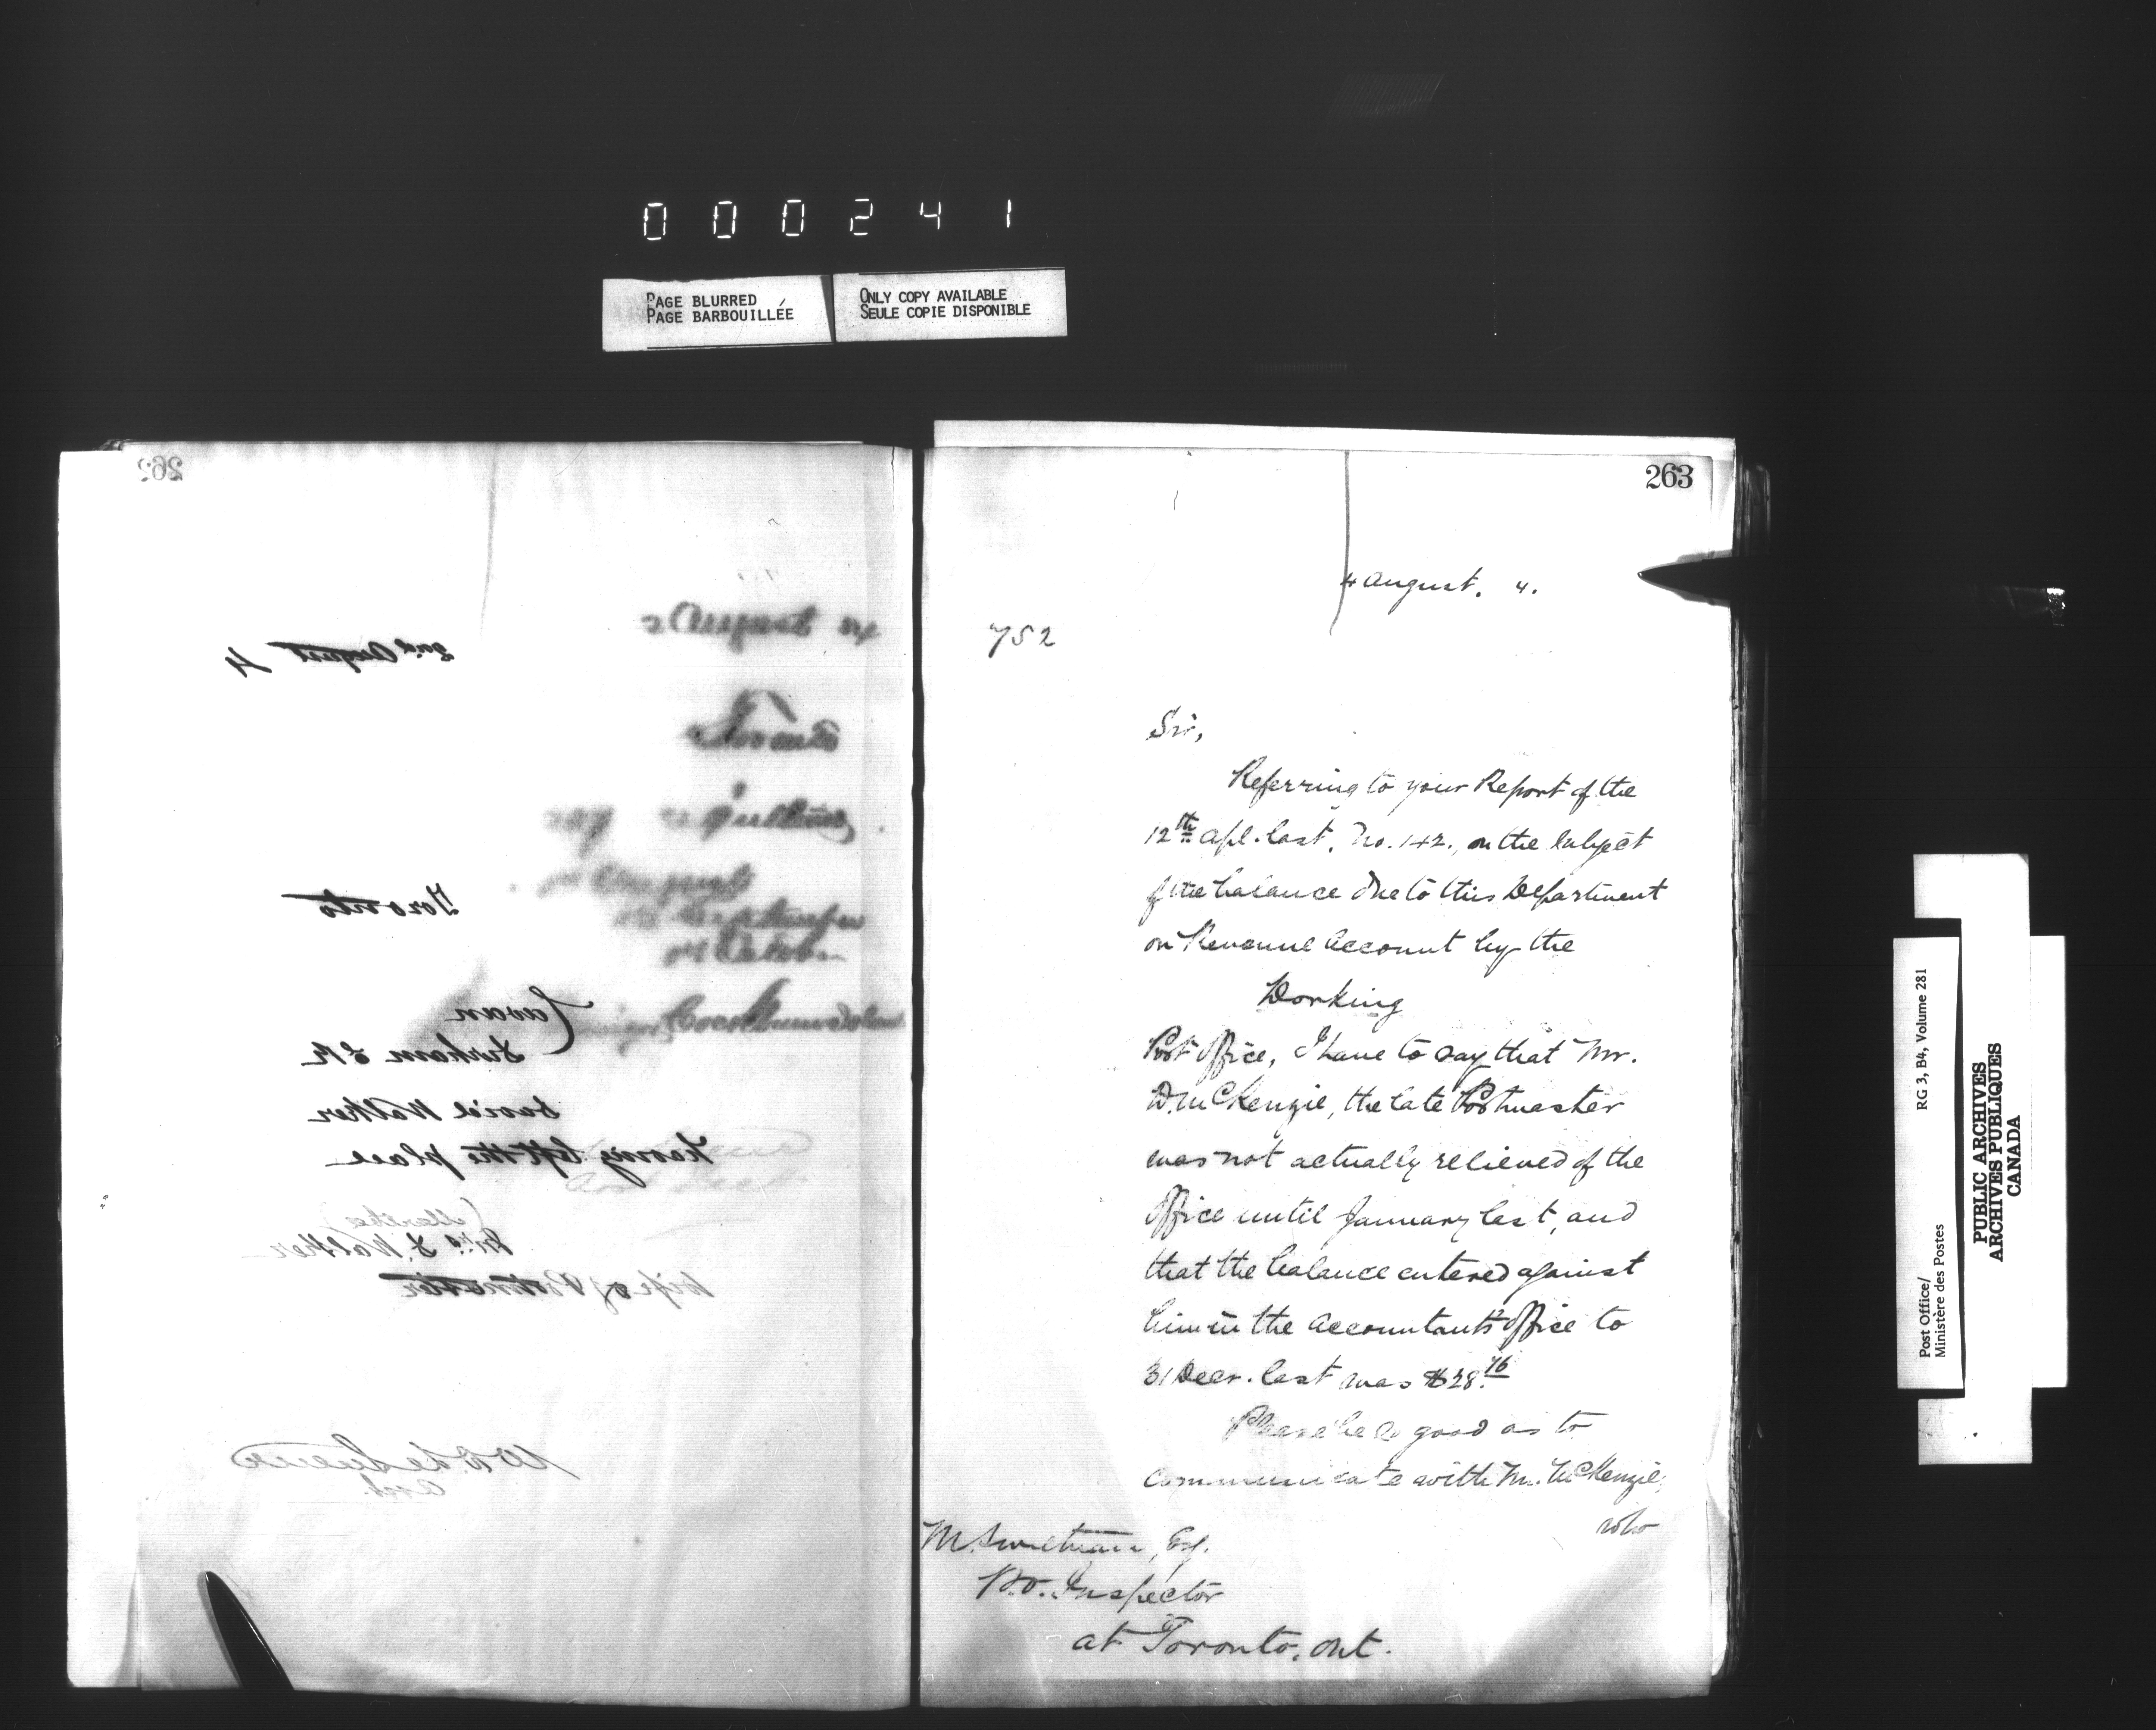 0 0 0 2 4 1
PAGE BLURRED
PAGE BARBOUILLÉE
ONLY COPY AVAILABLE
SEULE COPIE DISPONIBLE
262
2nd August 4
2 August
Toronto
August
September
October
Toronto
Cavan
Durham E R
David Walker
having left the place
(Martha)
Mrs. D. Walker
wife of Postmaster
263
4 August. 4.
752
Sir,
Referring to your Report of the
12th Apl. last, No. 142, on the subject
of the balance due to this Department
on Revenue Account by the
Dorking
Post Office, I have to say that Mr.
D. McKenzie, the late Postmaster
was not actually relieved of the
Office until January last, and
that the balance entered against
him in the Accountant's Office to
31 Decr. last was $28.76
Please be so good as to
communicate with Mr. McKenzie,
who
M. Sweetnam, Esq.
P.O. Inspector
at Toronto, Ont.
Post Office/
Ministère des Postes
RG 3, B4, Volume 281
PUBLIC ARCHIVES
ARCHIVES PUBLIQUES
CANADA